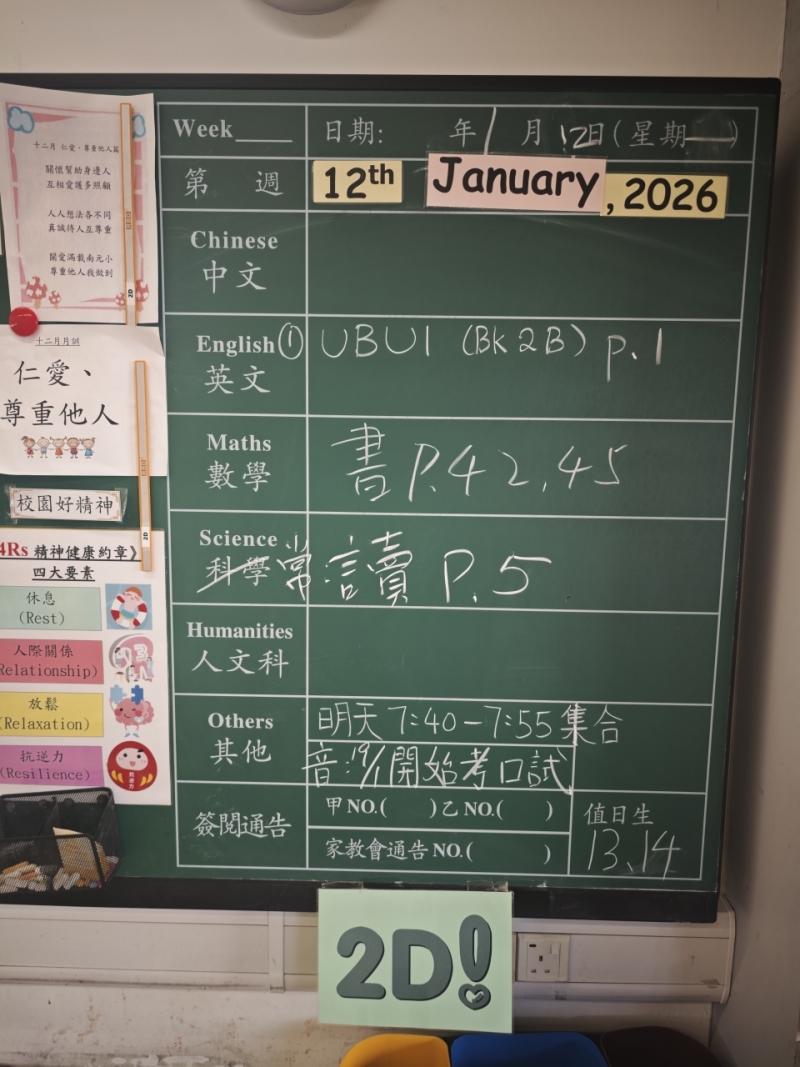 十二月 仁愛、尊重他人篇
關懷幫助身邊人
互相愛護多照顧
人人想法各不同
真誠待人互尊重
關愛滿載南元小
尊重他人我做到
十二月月訓
仁愛、
尊重他人
校園好精神
4Rs 精神健康約章》
四大要素
休息
(Rest)
人際關係
Relationship)
放鬆
(Relaxation)
抗逆力
(Resilience)
抗逆力
Week 日期: 年 1 月 12日(星期一)
第 週 12th January, 2026
Chinese
中文
English
英文
① UBU1 (Bk 2B) p.1
Maths
數學
書 P.42,45
Science
科學
常 讀 P.5
Humanities
人文科
Others
其他
明天 7:40-7:55 集合
音:19/1開始考口試
簽閱通告
甲 NO.( )乙 NO.( )
家教會通告 NO.( )
值日生
13,14
2D!